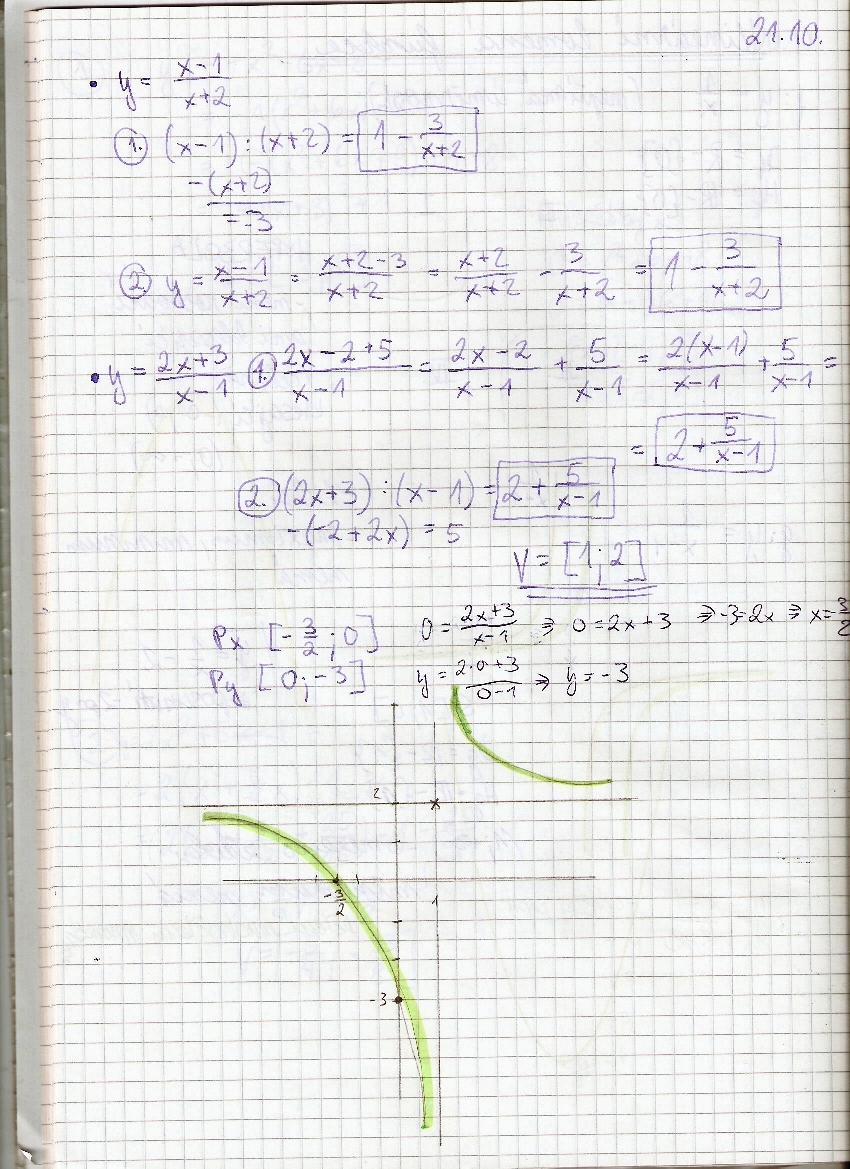 21.10.
• y = (x-1)/(x+2)
1. (x-1) : (x+2) = 1 - 3/(x+2)
-(x+2)
= -3
2. y = (x-1)/(x+2) = (x+2-3)/(x+2) = (x+2)/(x+2) - 3/(x+2) = 1 - 3/(x+2)
• y = (2x+3)/(x-1) 1. (2x-2+5)/(x-1) = (2x-2)/(x-1) + 5/(x-1) = 2(x-1)/(x-1) + 5/(x-1) =
= 2 + 5/(x-1)
2. (2x+3) : (x-1) = 2 + 5/(x-1)
-(-2+2x) = 5
V = [1; 2]
Px [-3/2; 0] 0 = (2x+3)/(x-1) ⇒ 0 = 2x+3 ⇒ -3=2x ⇒ x = 3/2
Py [0; -3] y = (2·0+3)/(0-1) ⇒ y = -3
2
-3/2
1
-3